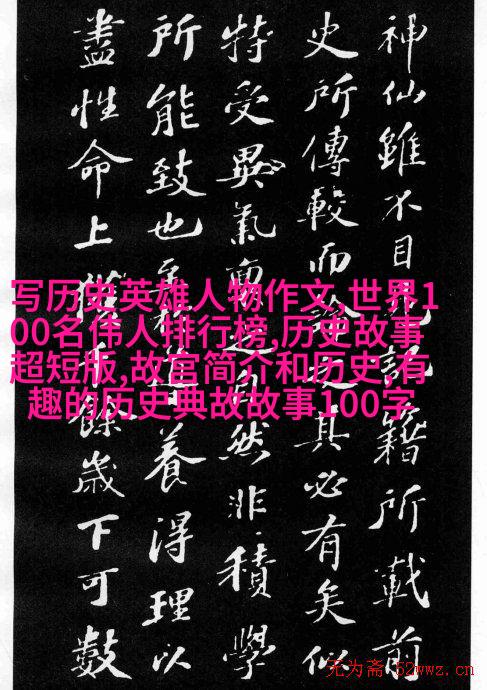 神仙雖不目見記籍所載前
史所傳較而論之其必有矣似
特受異氣自然非積學
所能致也養得理以
盡性命上餘歲下可數
写历史英雄人物作文,世界1
00名伟人排行榜,历史故事
超短版,故宫简介和历史,有
趣的历史典故故事100字
无为斋 52wwz.cn